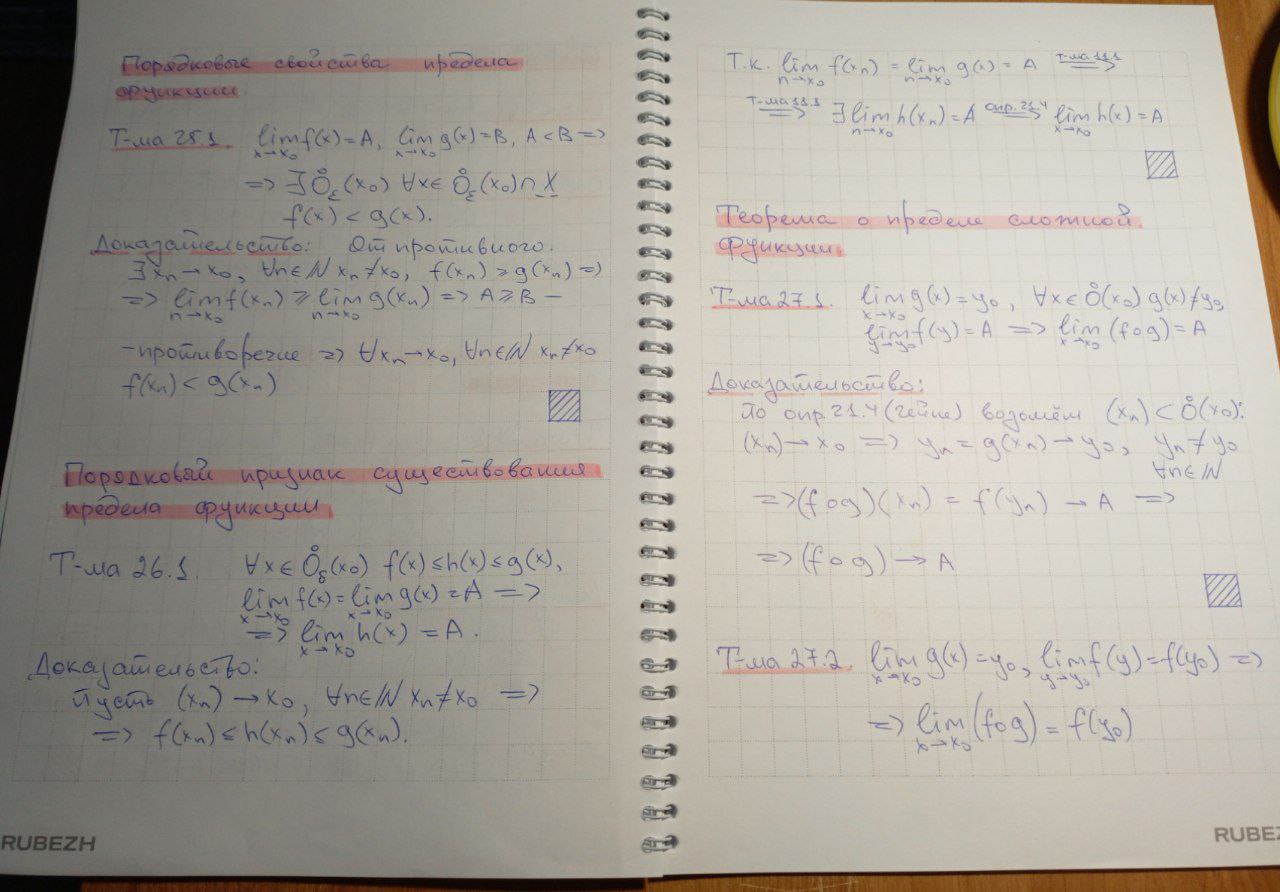 Порядковые свойства предела
функции.
Т-ма 25.1. lim f(x) = A, lim g(x) = B, A < B =>
x→x₀ x→x₀
=> ∃ O̊_ε(x₀) ∀x∈ O̊_ε(x₀)∩X
f(x) < g(x).
Доказательство: От противного.
∃ xₙ→x₀, ∀n∈ℕ xₙ≠x₀, f(xₙ) ≥ g(xₙ) =>
=> lim f(xₙ) ≥ lim g(xₙ) => A ≥ B –
n→x₀ n→x₀
– противоречие => ∀xₙ→x₀, ∀n∈ℕ xₙ≠x₀
f(xₙ) < g(xₙ)
Порядковый признак существования
предела функции.
Т-ма 26.1. ∀x∈ O̊_δ(x₀) f(x) ≤ h(x) ≤ g(x),
lim f(x) = lim g(x) = A =>
x→x₀ x→x₀
=> lim h(x) = A.
x→x₀
Доказательство:
Пусть (xₙ) → x₀, ∀n∈ℕ xₙ≠x₀ =>
=> f(xₙ) ≤ h(xₙ) ≤ g(xₙ).
RUBEZH
Т.к. lim f(xₙ) = lim g(x) = A т-ма 11.1 =>
n→x₀ n→x₀
т-ма 11.1 => ∃ lim h(xₙ) = A опр. 21.4 => lim h(x) = A
n→x₀ x→x₀
Теорема о пределе сложной
функции.
Т-ма 27.1. lim g(x) = y₀, ∀x∈ O̊(x₀) g(x)≠y₀,
x→x₀
lim f(y) = A => lim (f∘g) = A
y→y₀ x→x₀
Доказательство:
По опр. 21.4 (Гейне) возьмём (xₙ) ⊂ O̊(x₀):
(xₙ) → x₀ => yₙ = g(xₙ) → y₀, yₙ ≠ y₀
∀n∈ℕ
=> (f∘g)(xₙ) = f(yₙ) → A =>
=> (f∘g) → A
Т-ма 27.2. lim g(x) = y₀, lim f(y) = f(y₀) =>
x→x₀ y→y₀
=> lim (f∘g) = f(y₀)
x→x₀
RUBEZ